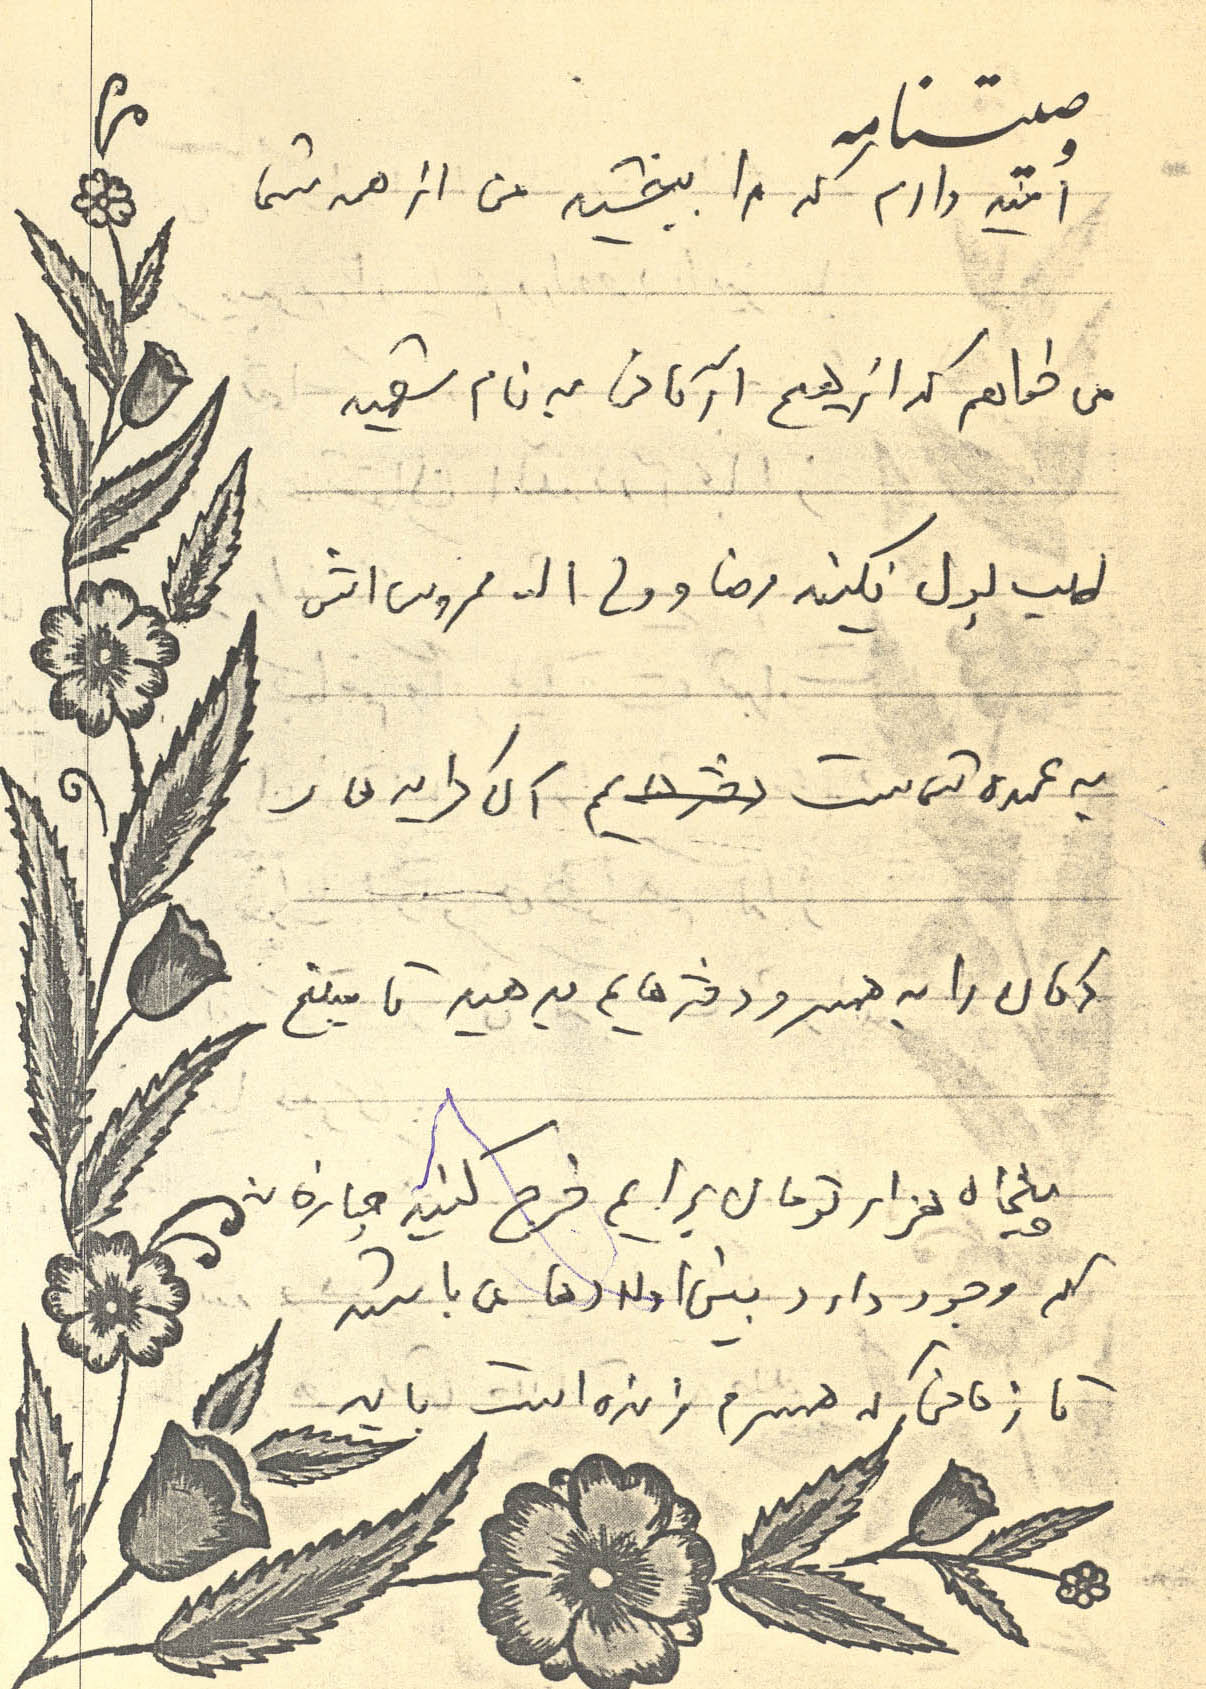 وصیتنامه
امید دارم که مرا ببخشید من از همه شما
می خواهم که از هیچ ارگانی به نام شهید
طلب پول نکنید رضا و ولی اله عروسی اش
به عهده شماست دخترهایم آن کرایه های
دکان را به همسر و دخترهایم بدهید تا مبلغ
پنجاه هزار تومان برایم خرج کنید مغازه
که وجود دارد بین اولادهای من باشد
تا زمانی که همسرم زنده است باید